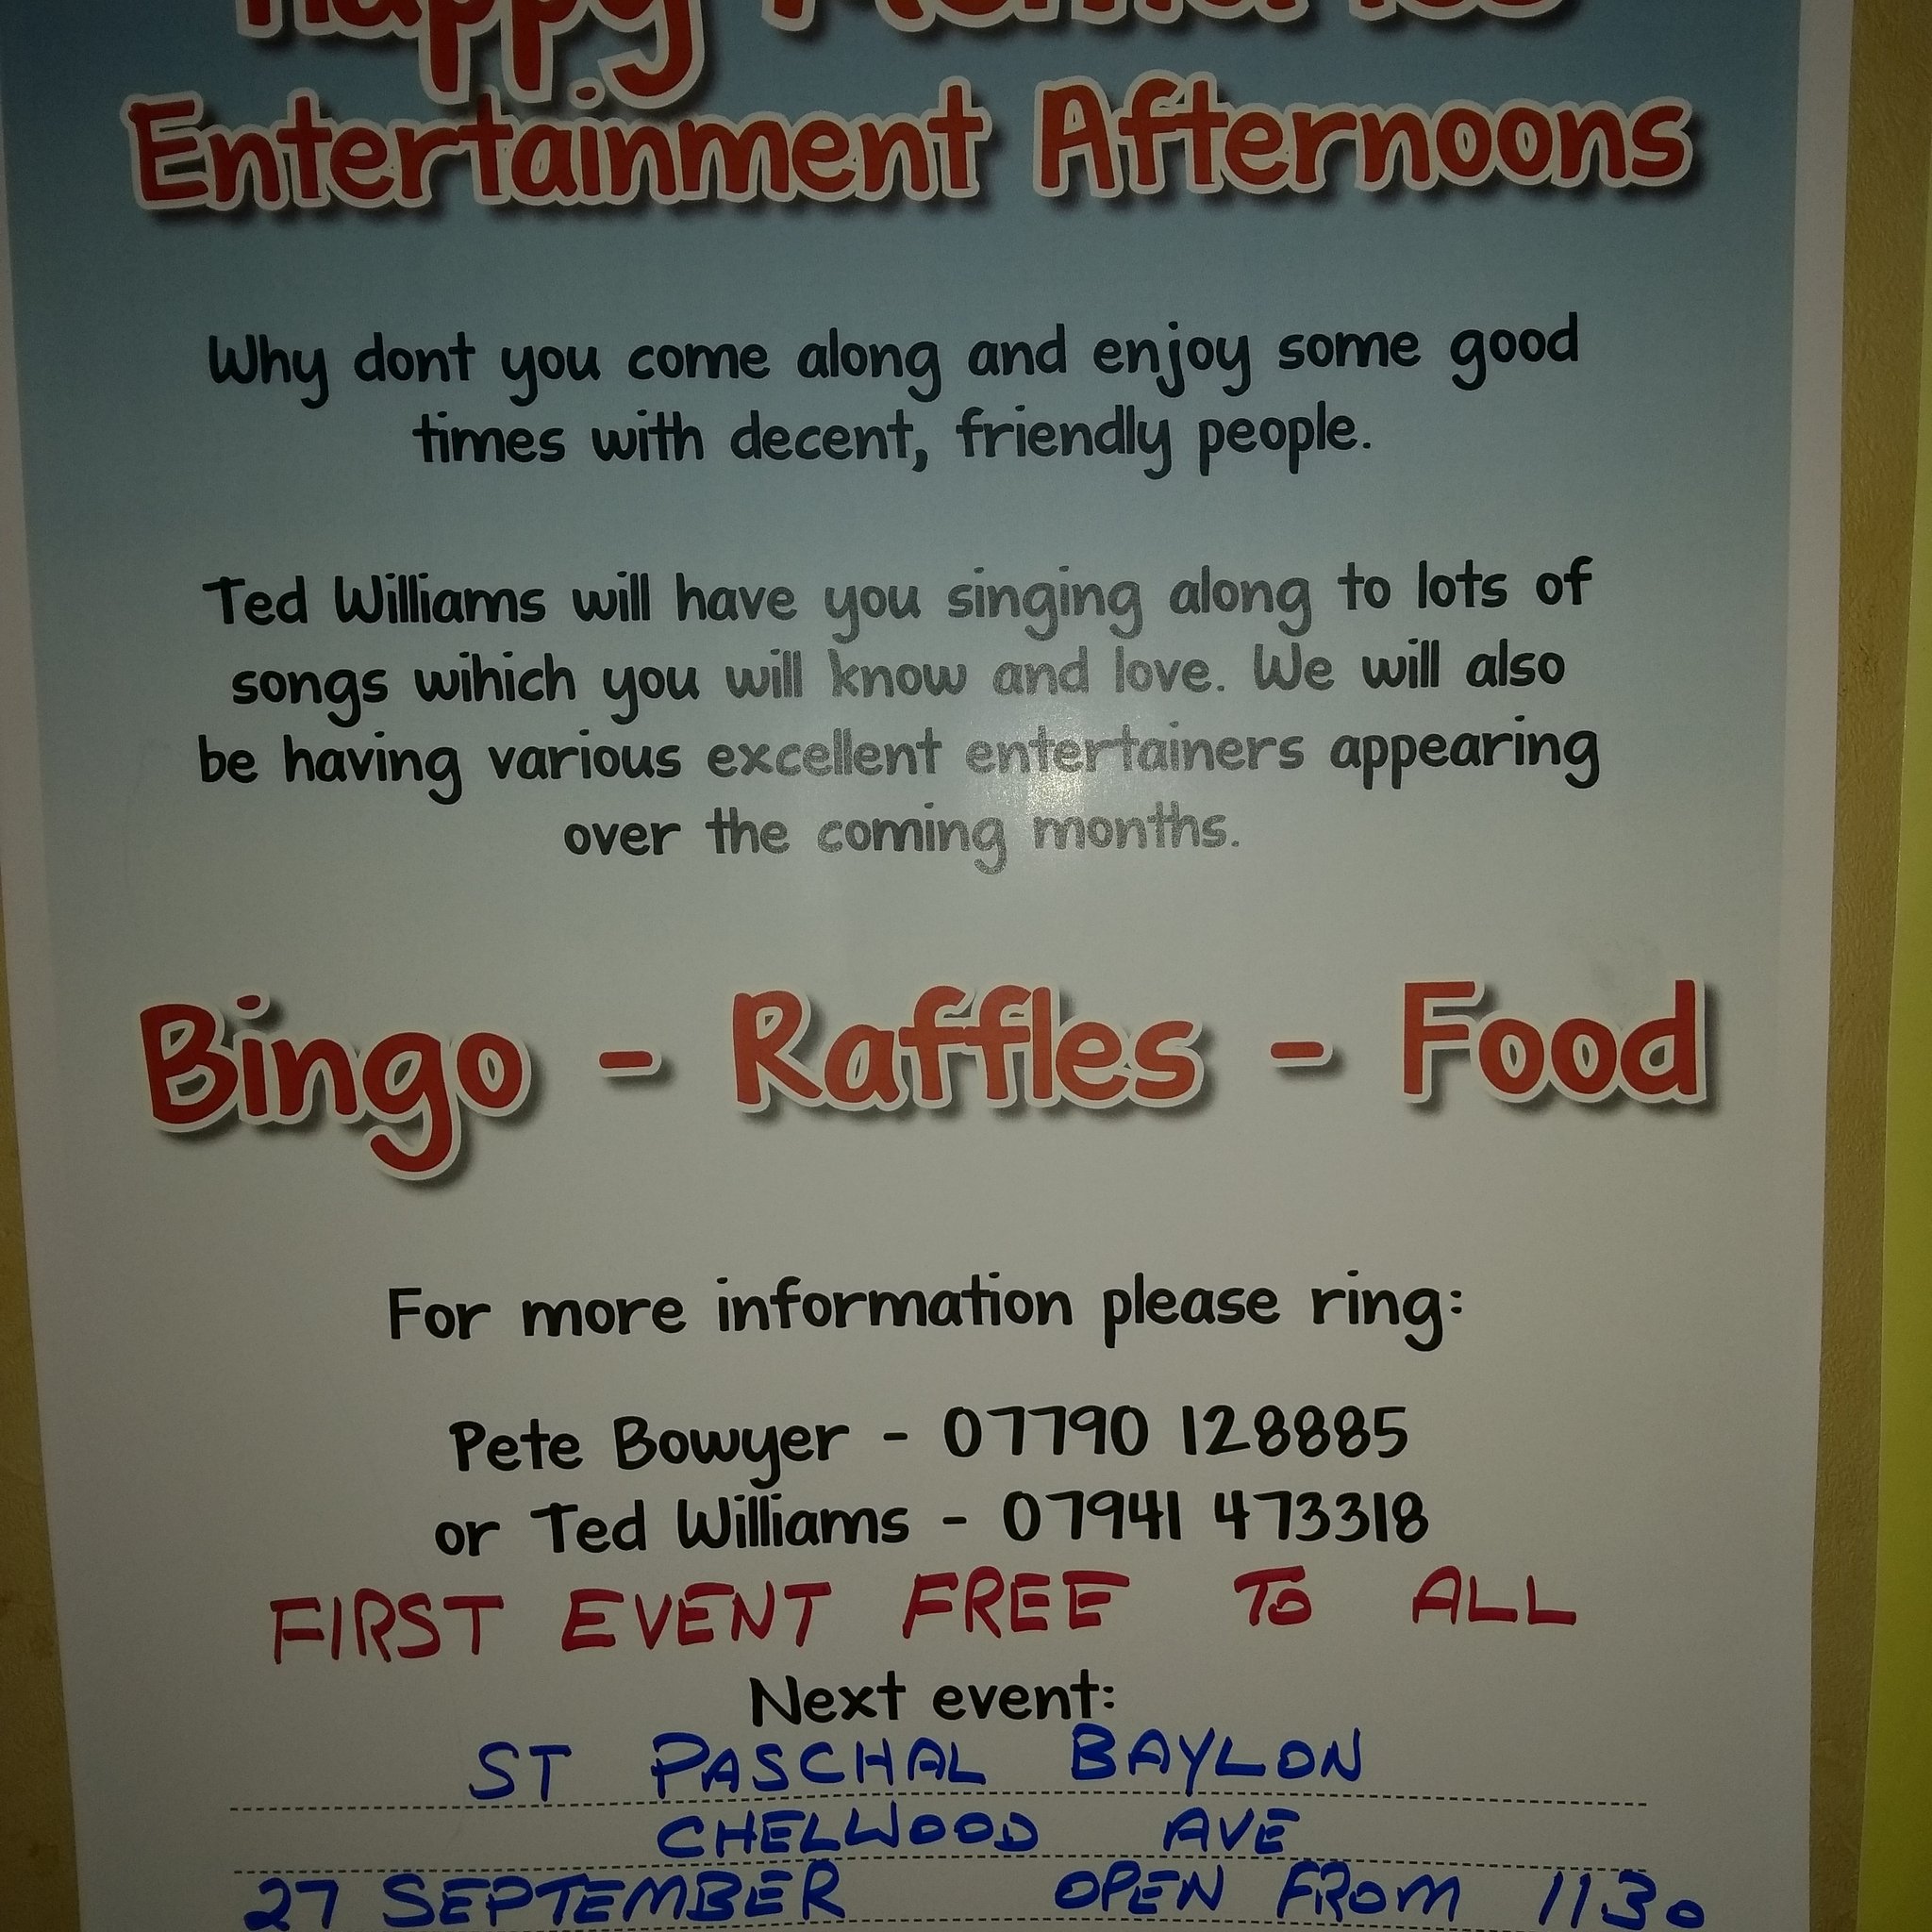 Happy Memories
Entertainment Afternoons
Why dont you come along and enjoy some good
times with decent, friendly people.
Ted Williams will have you singing along to lots of
songs wihich you will know and love. We will also
be having various excellent entertainers appearing
over the coming months.
Bingo - Raffles - Food
For more information please ring:
Pete Bowyer - 07790 128885
or Ted Williams - 07941 473318
FIRST EVENT FREE TO ALL
Next event:
ST PASCHAL BAYLON
CHELWOOD AVE
27 SEPTEMBER OPEN FROM 1130